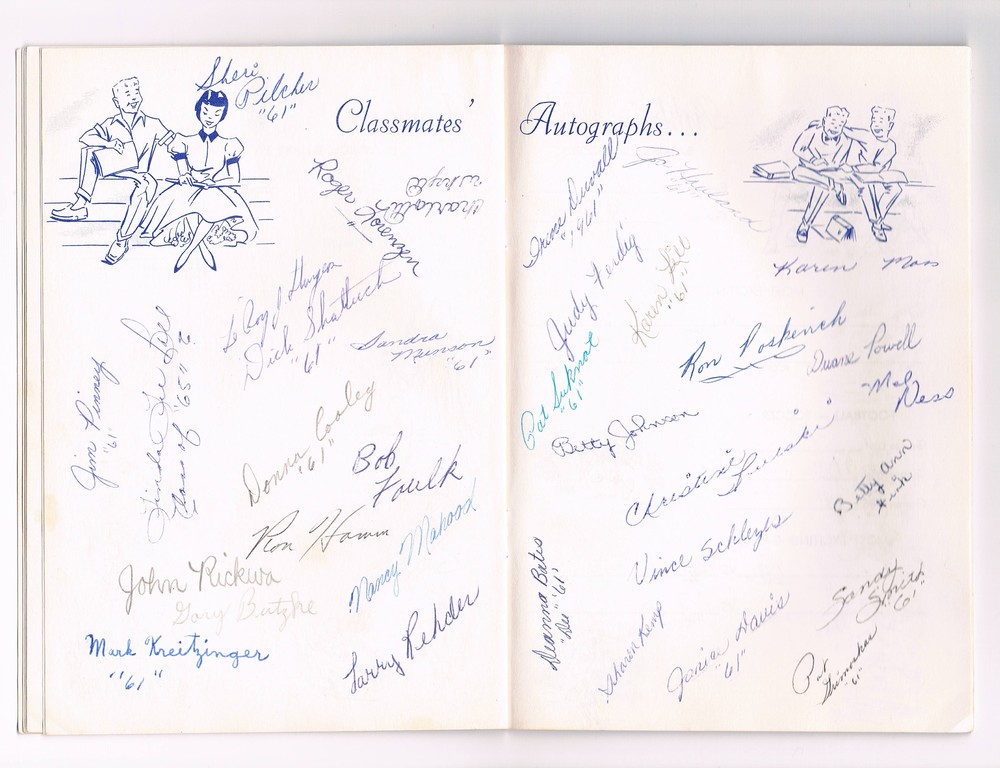 Classmates'
Sheri
Pilcher
"61"
Roger
Charlotte
Le Roy J
Dick Shattuck
"61"
Sandra
Munson
"61"
Jim Pinney
"61"
Linda Lee Kell
Class of "65"
Donna Cooley
"61"
Bob
Foulk
Ron Hamm
Nancy
John Rickwa
Gary Butzke
Mark Kreitzinger
"61"
Larry Rehder
Autographs...
Duvall
"1961"
Jo Howland
61
Judy Ferdig
Karen Kell
"61"
Karen Moss
Pat Suknat
"61"
Ron Poskevich
Duane Powell
Mel
Ness
Betty Johnson
Christine
Betty Ann
Vince Schleyer
Deanna Bates
"Dee" "61"
Sharon Kemp
Janice Davis
"61"
Sandy
Smith
"61"
Pat
"61"